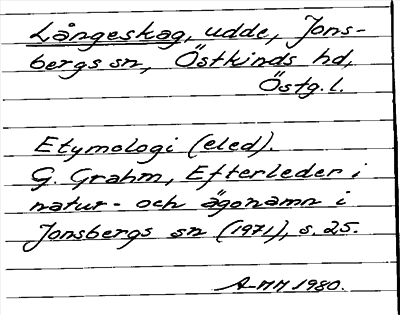 Långeskag, udde, Jons-
bergs sn, Östkinds hd,
Östg. l.
Etymologi (eled).
G. Grahm, Efterleder i
natur- och ägonamn i
Jonsbergs sn (1971), s. 25.
AMM 1980.